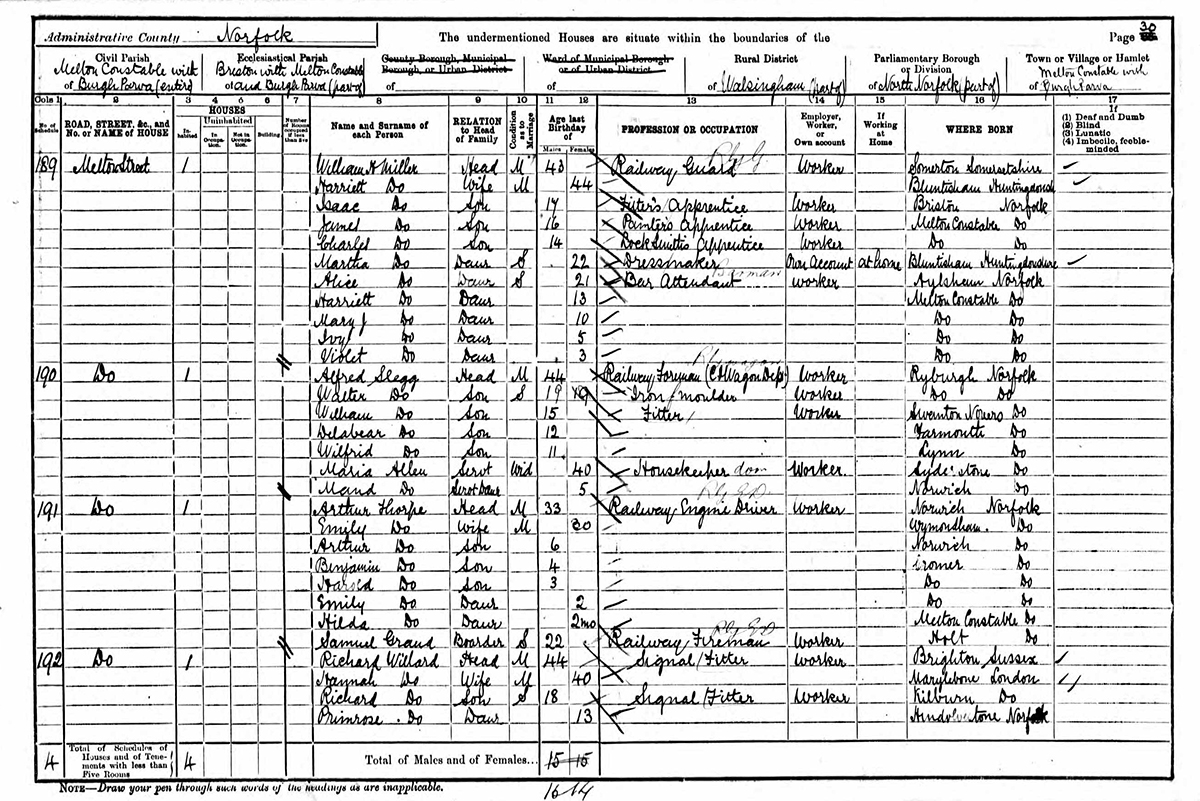 Administrative County Norfolk The undermentioned Houses are situate within the boundaries of the Page 30
Civil Parish Ecclesiastical Parish County Borough, Municipal Borough, or Urban District Ward of Municipal Borough or of Urban District Rural District Parliamentary Borough or Division Town or Village or Hamlet
of Melton Constable with Burgh Parva (entire) of Briston with Melton Constable and Burgh Parva (part of) of of of Walsingham (part of) of North Norfolk (part of) of Melton Constable with Burgh Parva
Cols 1 2 3 4 5 6 7 8 9 10 11 12 13 14 15 16 17
No. of Schedule ROAD, STREET, &c., and No. or NAME of HOUSE HOUSES Inhabited Uninhabited In Occupation Not in Occupation Building Number of Rooms occupied if less than five Name and Surname of each Person RELATION to Head of Family Condition as to Marriage Age last Birthday of Males Females PROFESSION OR OCCUPATION Employer, Worker, or Own account If Working at Home WHERE BORN If (1) Deaf and Dumb (2) Blind (3) Lunatic (4) Imbecile, feeble-minded
189 Melton Street 1 William H Miller Head M 43 Railway Guard Rly G Worker Somerton Somersetshire
Harriett Do Wife M 44 Bluntisham Huntingdonsh
Isaac Do Son 17 Fitter's Apprentice Worker Briston Norfolk
James Do Son 16 Painter's Apprentice Worker Melton Constable Do
Charles Do Son 14 LockSmith's Apprentice Worker Do Do
Martha Do Daur S 22 Dressmaker Own Account at home Bluntisham Huntingdonshire
Alice Do Daur S 21 Bar Attendant Barman Worker Aylsham Norfolk
Harriett Do Daur 13 Melton Constable Do
Mary J Do Daur 10 Do Do
Ivy Do Daur 5 Do Do
Violet Do Daur 3 Do Do
190 Do 1 Alfred Slegg Head M 44 Railway Foreman (C & Wagon Dep) Worker Ryburgh Norfolk
Walter Do Son S 19 19 Iron moulder Worker Do Do
William Do Son 15 Fitter Worker Swanton Novers Do
Delabear Do Son 12 Yarmouth Do
Wilfrid Do Son 11 Lynn Do
Maria Allen Servt Wid 40 Housekeeper dom Worker Syderstone Do
Maud Do Servt Daur 5 Norwich Do
191 Do 1 Arthur Thorpe Head M 33 Railway Engine Driver Rly E D Worker Norwich Norfolk
Emily Do Wife M 30 Wymondham Do
Arthur Do Son 6 Norwich Do
Benjamin Do Son 4 Cromer Do
Harold Do Son 3 Do Do
Emily Do Daur 2 Do Do
Hilda Do Daur 2mo Melton Constable Do
Samuel Grand Boarder S 22 Railway Fireman Rly E D Worker Holt Do
192 Do 1 Richard Willard Head M 44 Signal Fitter Worker Brighton Sussex
Hannah Do Wife M 40 Marylebone London
Richard Do Son S 18 Signal Fitter Worker Kilburn Do
Primrose Do Daur 13 Hindolvestone Norfolk
4 Total of Schedules of Houses and of Tenements with less than Five Rooms 4 Total of Males and of Females... 15 15
16 14
NOTE—Draw your pen through such words of the headings as are inapplicable.